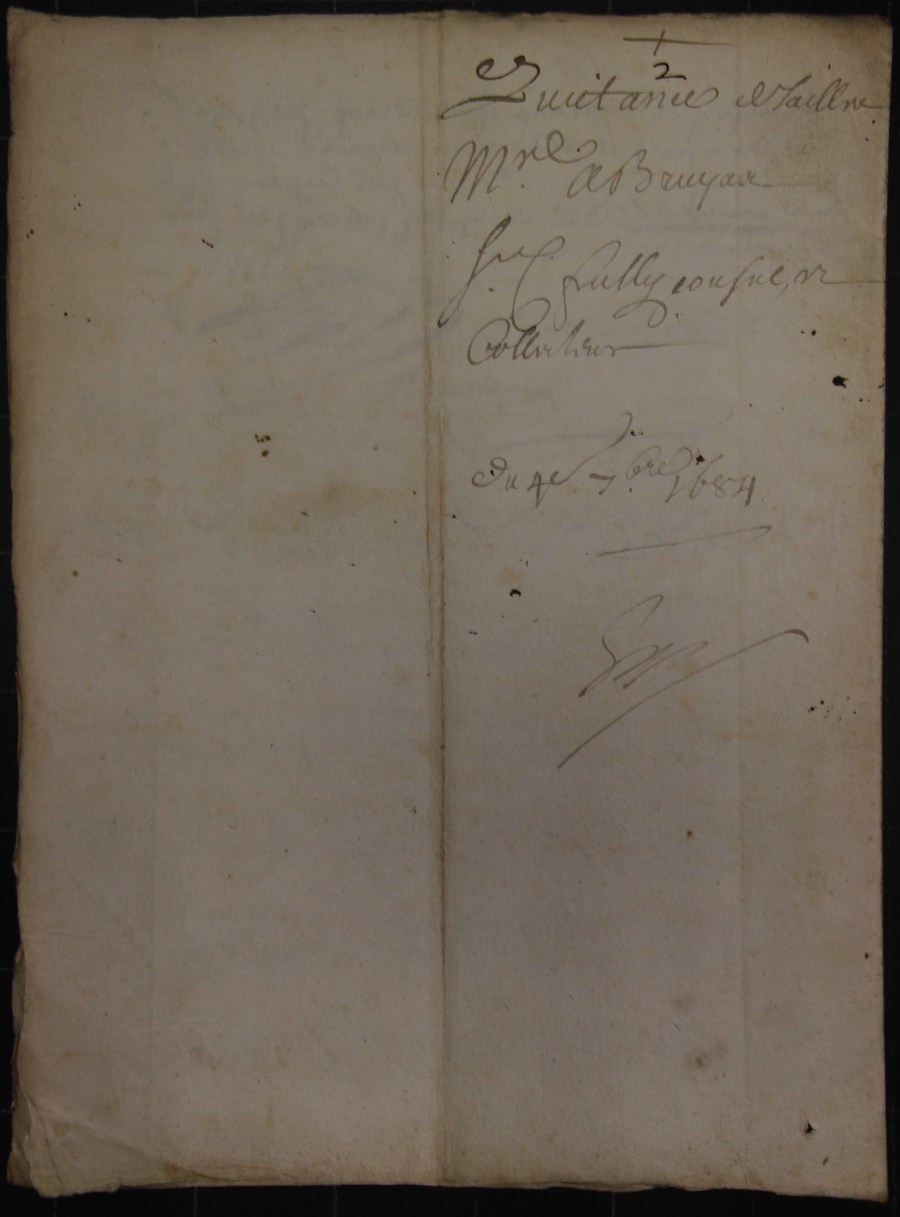 2
Quictance de Taille
Mre de Bruyaa
Sr C Sully consul, et
Collecteur
Du 4e 7bre 1684